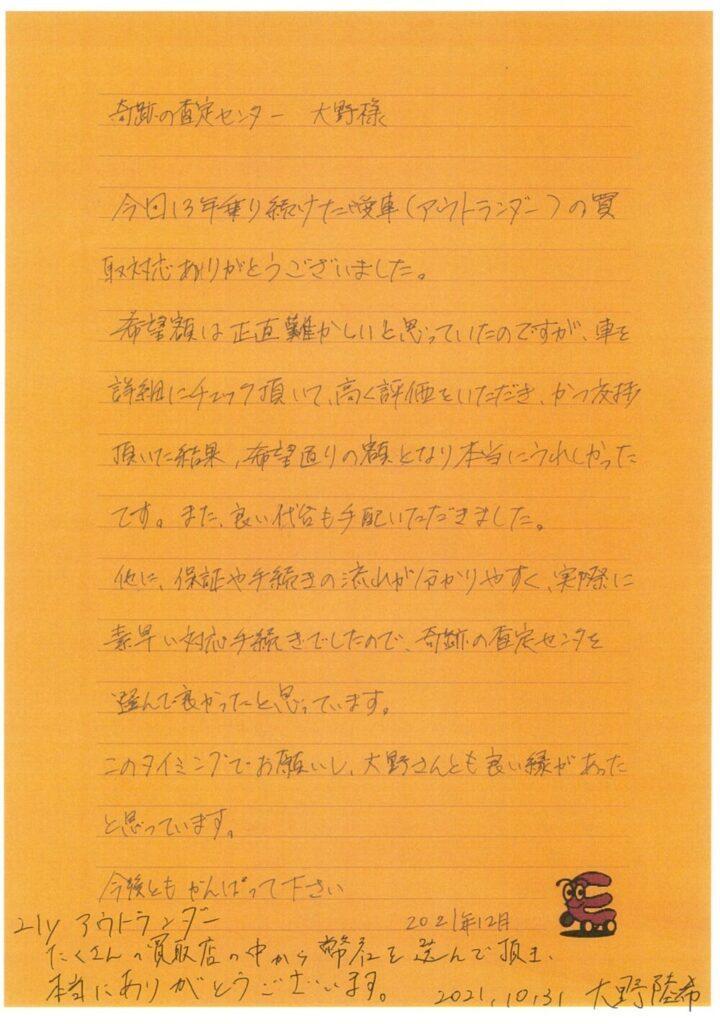 奇跡の査定センター 大野様
今回13年乗り続けた愛車(アウトランダー)の買
取対応ありがとうございました。
希望額は正直難かしいと思っていたのですが、車を
詳細にチェック頂いて、高く評価をいただき、かつ交渉
頂いた結果、希望通りの額となり本当にうれしかった
です。また、良い代台も手配いただきました。
他に、保証や手続きの流れが分かりやすく、実際に
素早い対応手続きでしたので、奇跡の査定センタを
選んで良かったと思っています。
このタイミングでお願いし、大野さんとも良い縁があった
と思っています。
今後ともがんばって下さい
2021年12月
21y アウトランダー
たくさんの買取店の中から弊社を選んで頂き、
本当にありがとうございます。 2021.10.31 大野陸希